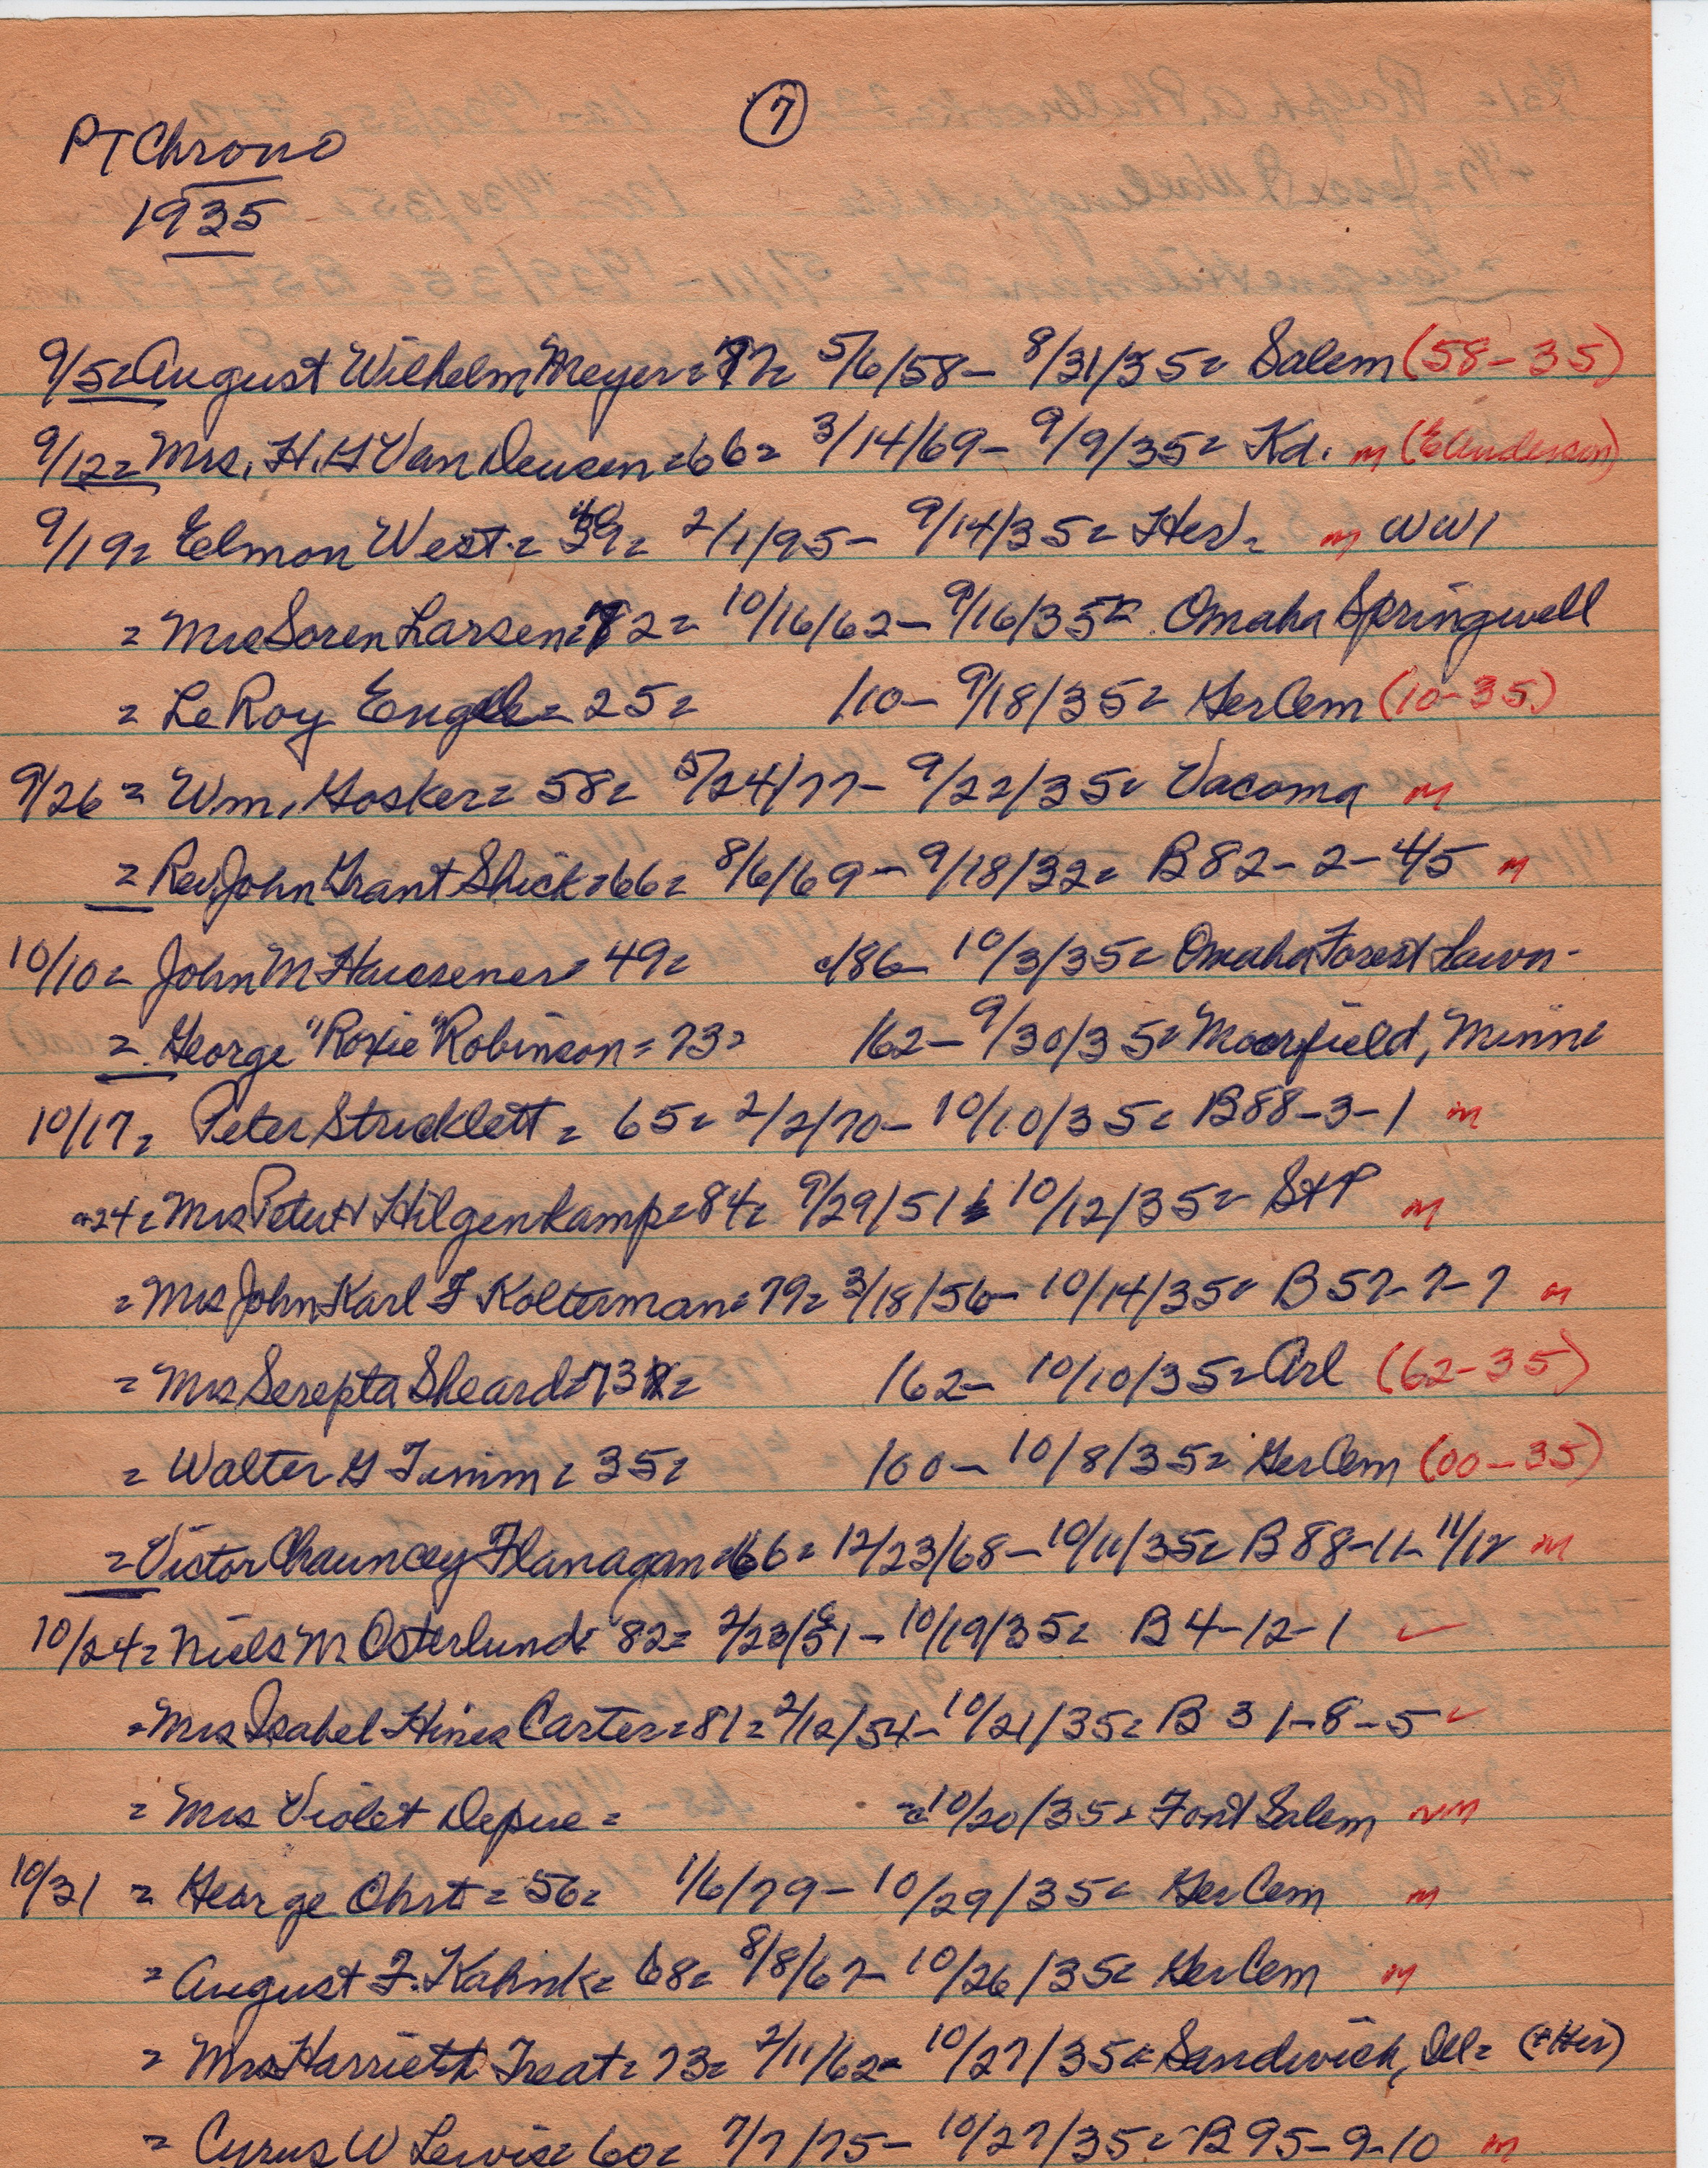 7
PT Chrono
1935
9/5= August Wilhelm Meyer= 77= 5/6/58- 8/31/35= Salem (58-35)
9/12= Mrs. H.G Van Deusen=66= 3/14/69- 9/9/35= Kd. m (E Anderson)
9/19= Elmon West= 40 39= 2/1/95- 9/14/35= Her= m WW1
= Mrs Soren Larsen=72= 10/16/62- 9/16/35= Omaha Springwell
= LeRoy Engel= 25= /10- 9/18/35= GerCem (10-35)
9/26 = Wm. Gosker= 58= 5/24/77- 9/22/35= Vacoma m
= Rev John Grant Shick=66= 8/6/69- 9/18/32= B82-2-4/5 m
10/10= John M = 49= c/86- 10/3/35= Omaha Forest Lawn-
= George "Roxie" Robinson= 73= /62- 9/30/35= Moorfield, Minn=
10/17= Peter Stricklett= 65= 2/2/70- 10/10/35= B88-3-1 m
24= Mrs Peter H Hilgenkamp=84= 9/29/51 10/12/35= StP m
= Mrs John Karl F Kolterman= 79= 3/18/56- 10/14/35= B 57-7-7 m
= Mrs Serepta Sheard=73= /62- 10/10/35= Arl (62-35)
= Walter G Timm= 35= /00- 10/8/35= GerCem (00-35)
= Victor Chauncey Flanagan=66= 12/23/68- 10/11/35= B 88-11-11/12 m
10/24= Niels M Osterlund= 82= 2/23/51- 10/19/35= B 4-12-1 ✓
= Mrs Isabel Hines Carter=81= 2/12/54- 10/21/35= B 31-8-5 ✓
= Mrs Violet Depue= -10/20/35= Font Salem nm
10/31 = George Ohrt= 56= 1/6/79- 10/29/35= GerCem m
= August F. Kahnk= 68= 8/8/67- 10/26/35= GerCem m
= Mrs Harriett Treat= 73= 2/11/62- 10/27/35= Sandwich, Ill= (+Her)
= Cyrus W Lewis= 60= 7/7/75- 10/27/35= B 95-9-10 m